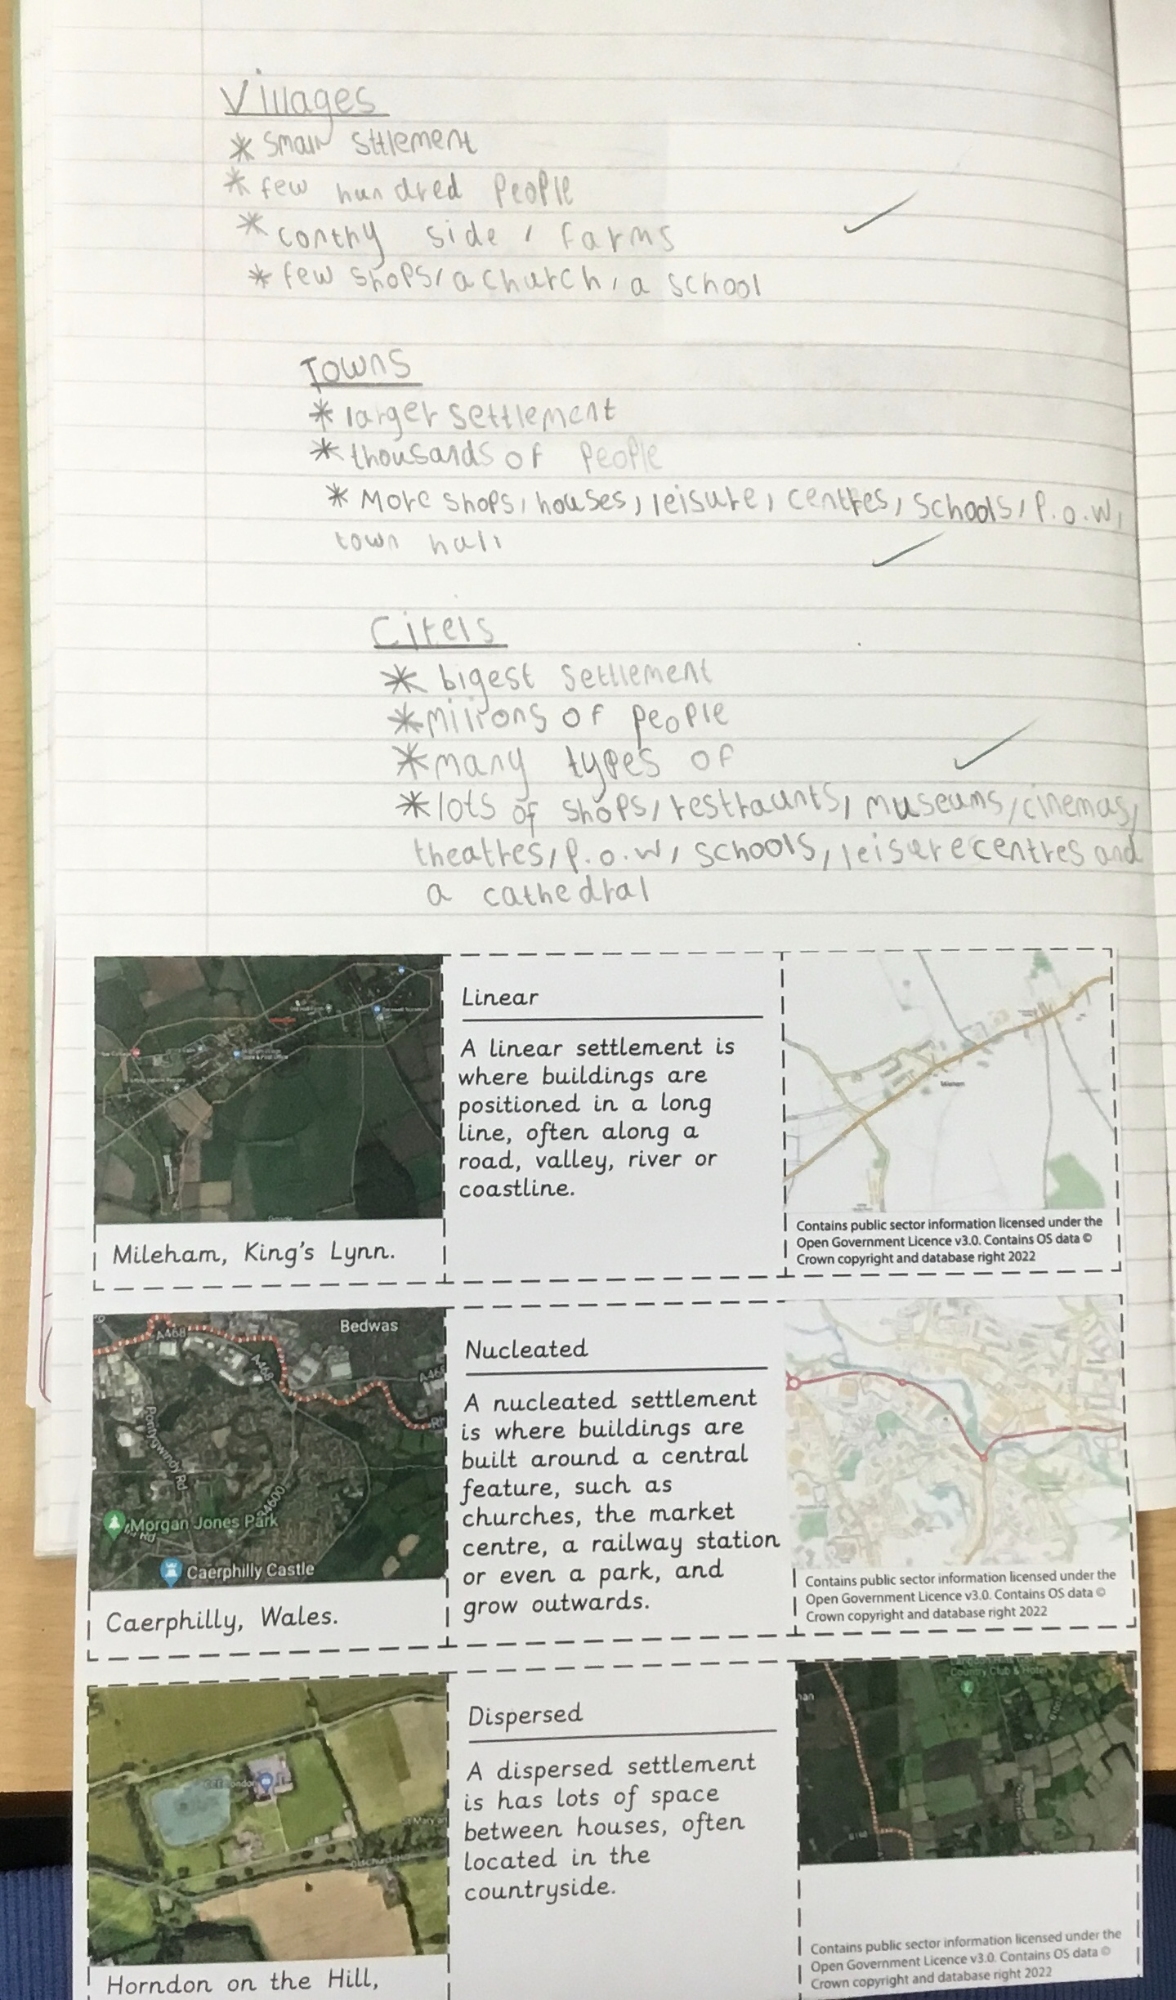 Villages
* small sttlement
* few hundred People
* contry side / farms
* few shops/a church, a school
Towns
* larger settlement
* thousands of People
* More shops, houses, leisure, centres, schools, P.o.w,
town hall
Citeis
* bigest settlement
* millions of people
* many types of
* lots of shops, restraunts, museums, cinemas,
theatres, P.o.w, schools, leisure centres and
a cathedral
Linear
A linear settlement is
where buildings are
positioned in a long
line, often along a
road, valley, river or
coastline.
Mileham
Contains public sector information licensed under the
Open Government Licence v3.0. Contains OS data ©
Crown copyright and database right 2022
Mileham, King's Lynn.
A468
Bedwas
A468
Pontygwindy Rd
A4600
Morgan Jones Park
Caerphilly Castle
Caerphilly, Wales.
Nucleated
A nucleated settlement
is where buildings are
built around a central
feature, such as
churches, the market
centre, a railway station
or even a park, and
grow outwards.
Contains public sector information licensed under the
Open Government Licence v3.0. Contains OS data ©
Crown copyright and database right 2022
Horndon on the Hill,
Dispersed
A dispersed settlement
is has lots of space
between houses, often
located in the
countryside.
Country Club & Hotel
Contains public sector information licensed under the
Open Government Licence v3.0. Contains OS data ©
Crown copyright and database right 2022